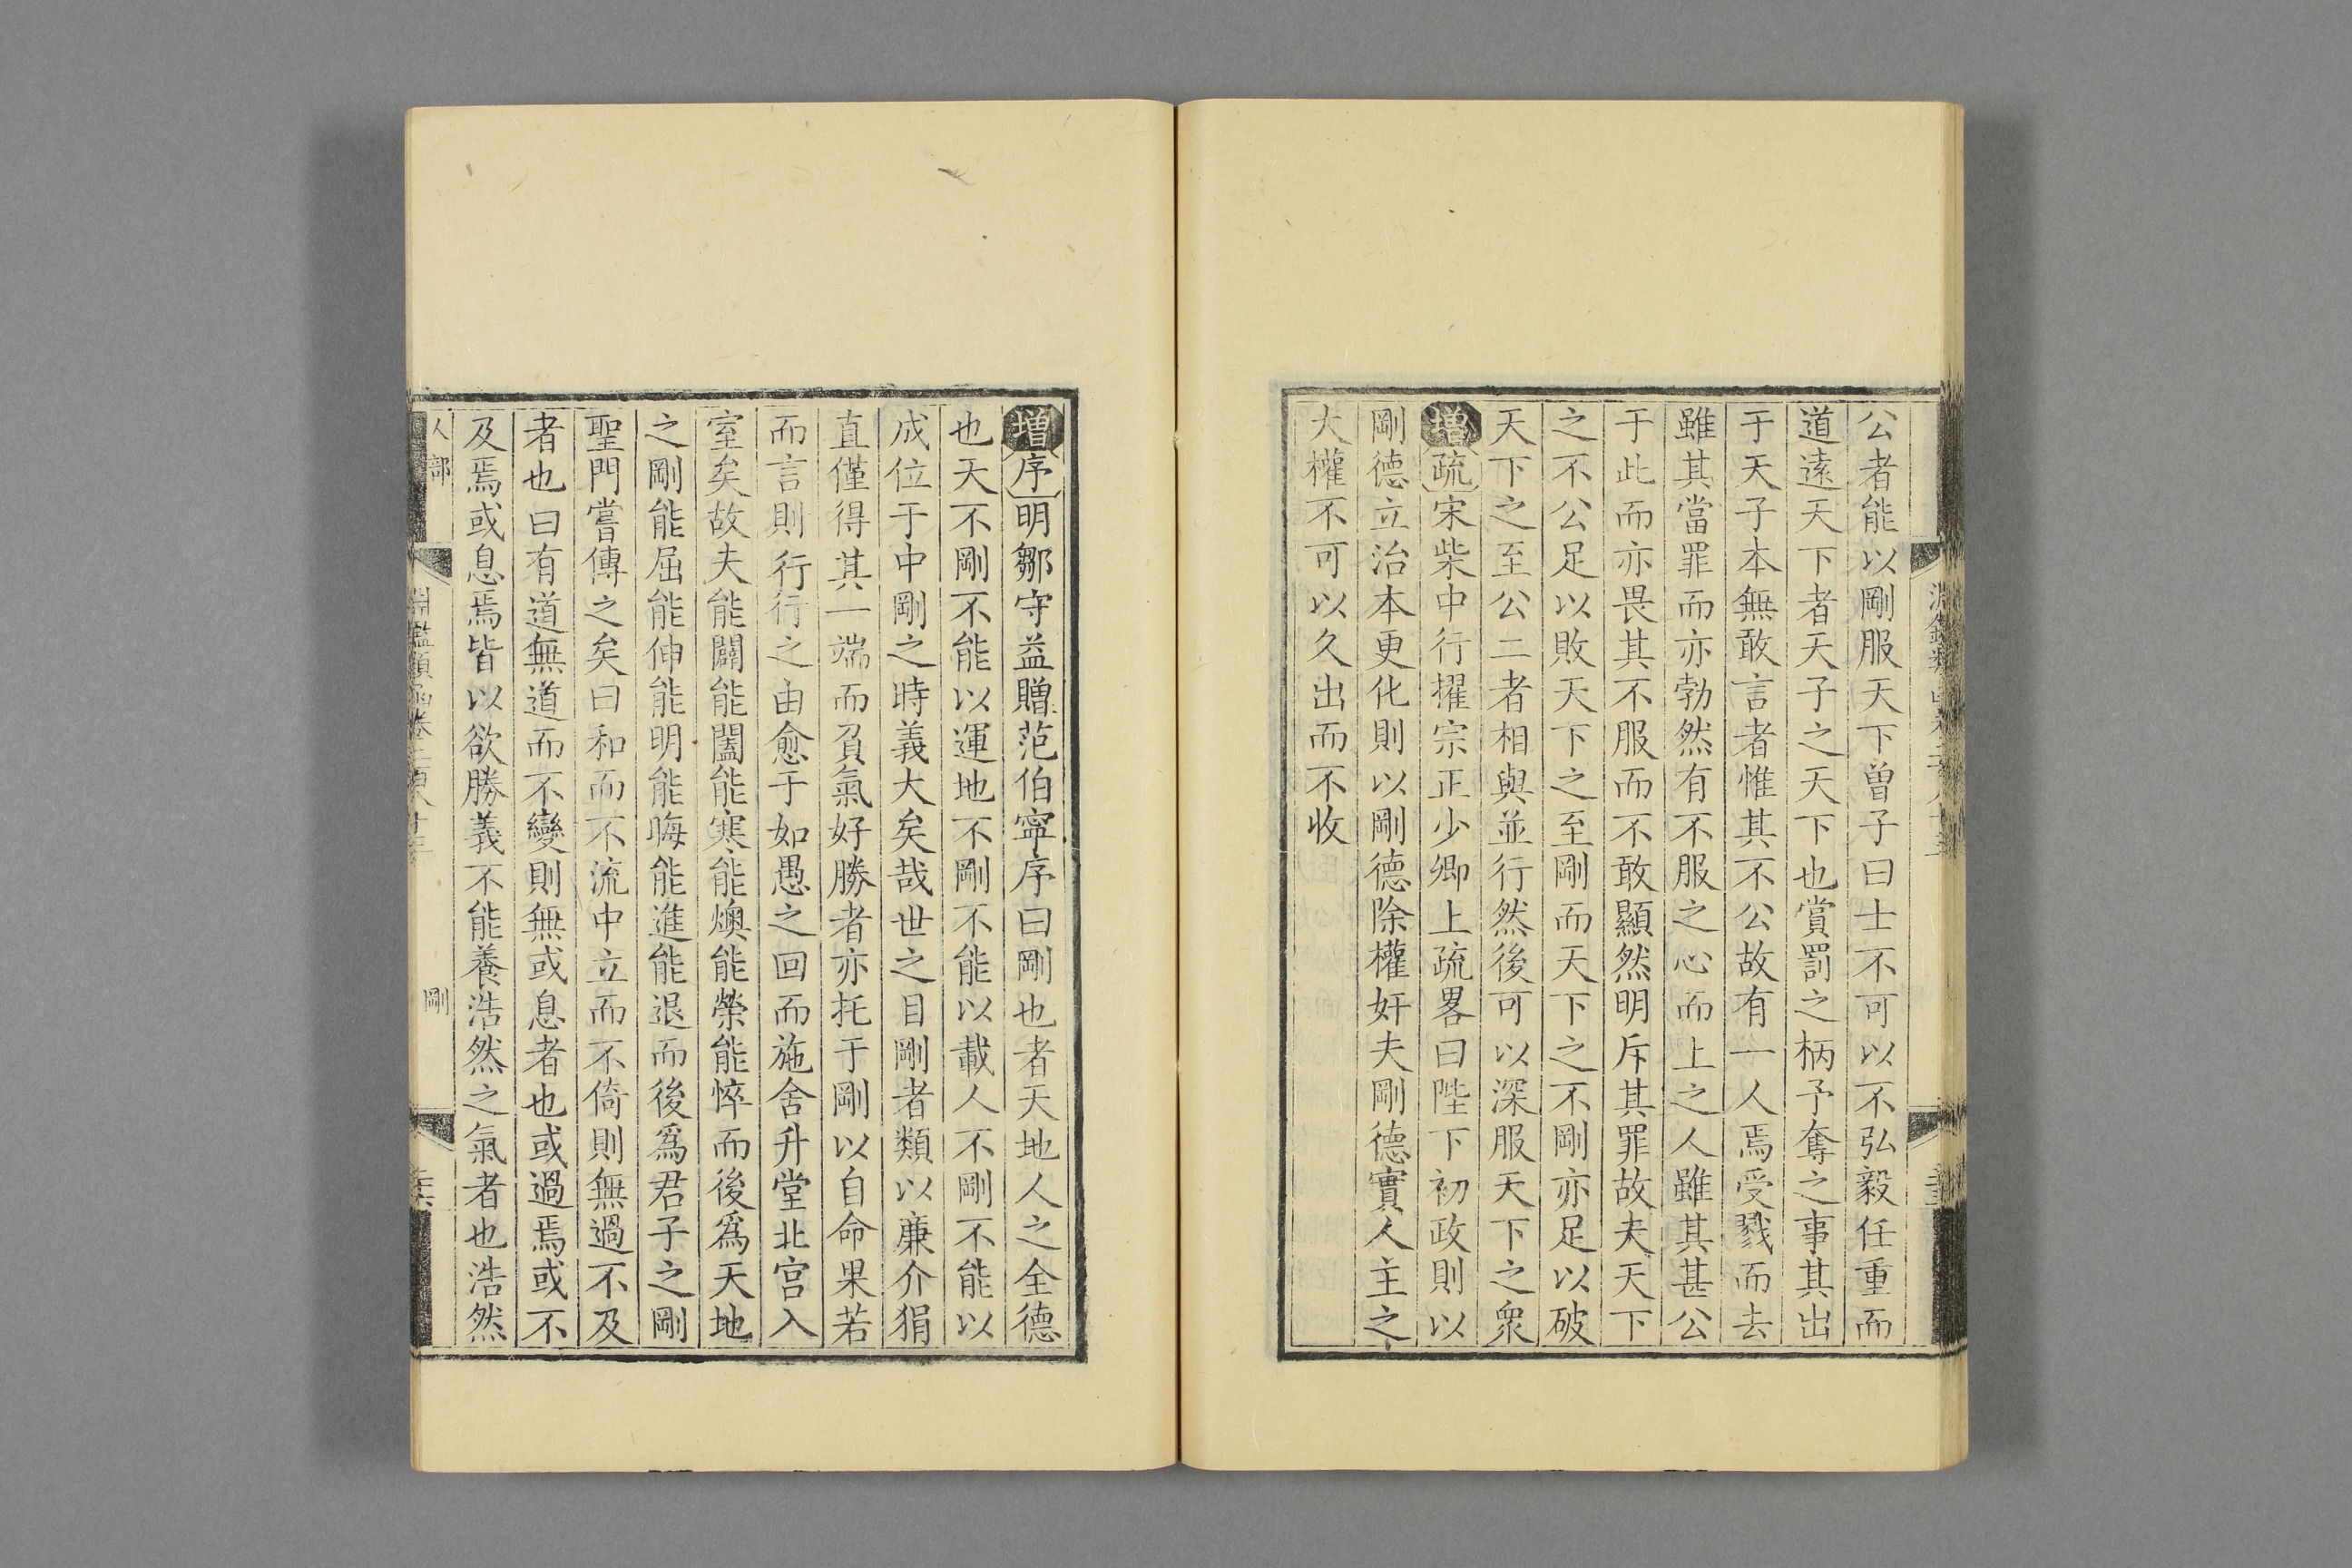 公者能以剛服天下曾子曰士不可以不弘毅任重而
道遠天下者天子之天下也賞罰之柄予奪之事其出
于天子本無敢言者惟其不公故有一人焉受戮而去
雖其當罪而亦勃然有不服之心而上之人雖其甚公
于此而亦畏其不服而不敢顯然明斥其罪故夫天下
之不公足以敗天下之至剛而天下之不剛亦足以破
天下之至公二者相與並行然後可以深服天下之衆
增疏宋柴中行擢宗正少卿上疏畧曰陛下初政則以
剛德立治本更化則以剛德除權奸夫剛德實人主之
大權不可以久出而不收
增序明鄒守益贈范伯寧序曰剛也者天地人之全德
也天不剛不能以運地不剛不能以載人不剛不能以
成位于中剛之時義大矣哉世之目剛者類以廉介狷
直僅得其一端而負氣好勝者亦托于剛以自命果若
而言則行行之由愈于如愚之回而施舍升堂北宮入
室矣故夫能闢能闔能寒能燠能榮能悴而後爲天地
之剛能屈能伸能明能晦能進能退而後爲君子之剛
聖門嘗傳之矣曰和而不流中立而不倚則無過不及
者也曰有道無道而不變則無或息者也或過焉或不
及焉或息焉皆以欲勝義不能養浩然之氣者也浩然
人部
剛